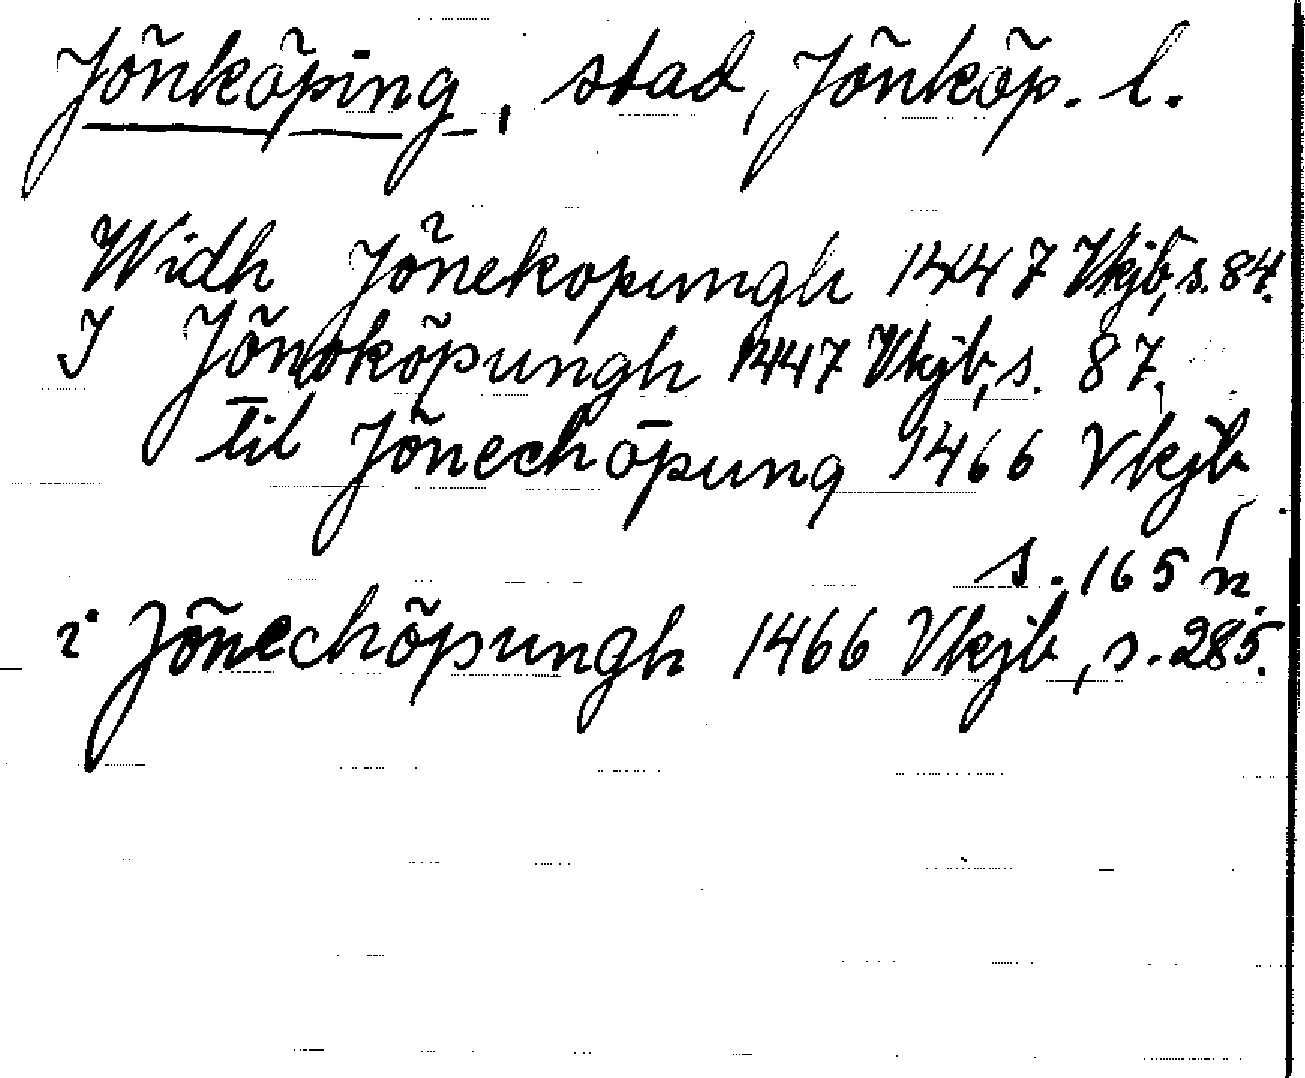 Jönköping, stad, Jönköp. l.
Widh Jönekopungh 1447 Vkjb, s. 84.
I Jönoköpungh 1447 Vkjb, s. 87.
til Jönechöpung 1466 Vkjb,
s. 165 n.
i Jönechöpungh 1466 Vkjb, s. 285.